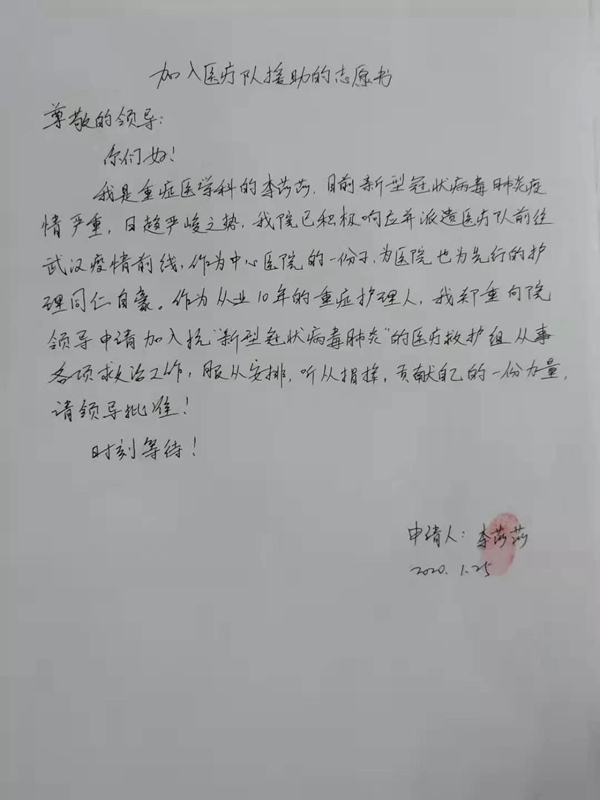 加入医疗队援助的志愿书
尊敬的领导：
你们好！
我是重症医学科的李莎莎，目前新型冠状病毒肺炎疫
情严重，日趋严峻之势，我院已积极响应并派遣医疗队前往
武汉疫情前线，作为中心医院的一份子，为医院也为先行的护
理同仁自豪。作为从业10年的重症护理人，我郑重向院
领导申请加入抗“新型冠状病毒肺炎”的医疗救护组从事
各项救治工作，服从安排，听从指挥，贡献自己的一份力量，
请领导批准！
时刻等待！
申请人：李莎莎
2020.1.25